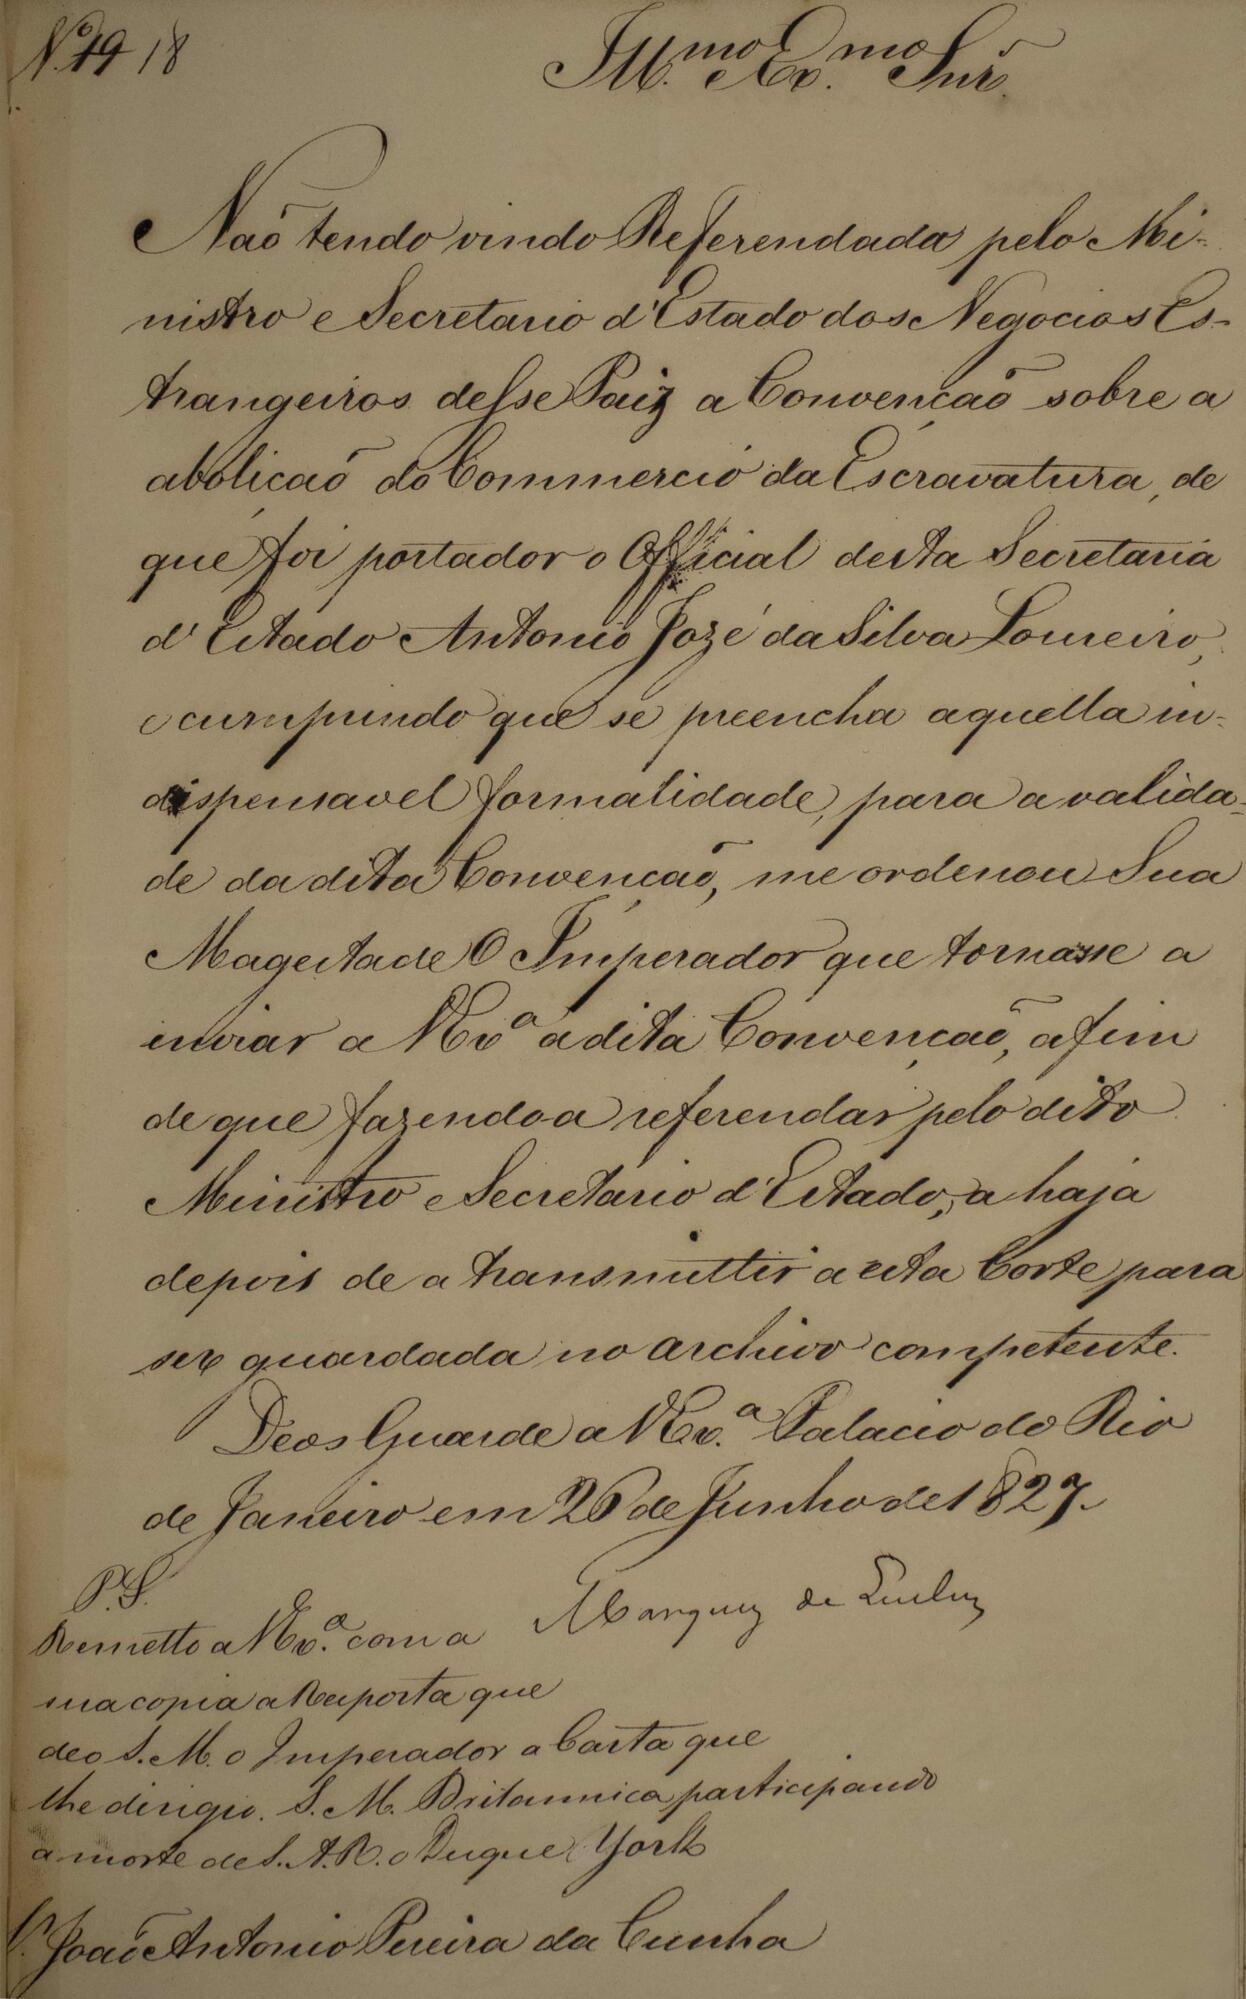 Nº 19 18
Ill.mo Ex.mo Snr.
Naõ tendo vindo Referendada pelo Mi-
nistro e Secretario d'Estado dos Negocios Es-
trangeiros desse Paiz a Convençaõ sobre a
aboliçaõ do Commercio da Escravatura, de
que foi portador o Official desta Secretaria
d'Estado Antonio Jozé da Silva Loureiro,
e cumprindo que se preencha aquella in-
dispensavel formalidade, para a valida-
de da dita Convençaõ, me ordenou Sua
Magestade O Imperador que tornasse a
enviar a VEx.a a dita Convençaõ, afim
de que fazendo-a referendar pelo dito
Ministro e Secretario d'Estado, a haja
depois de a transmittir a esta Corte para
ser guardada no archivo competente.
Deos Guarde a VEx.a Palacio do Rio
de Janeiro em 26 de Junho de 1827.
P.S.
Marquez de Queluz
Remetto a VEx.a com a
sua copia a Resposta que
deo S. M. o Imperador a Carta que
lhe dirigio S. M. Britannica participando
a morte de S. A. R. o Duque York
Sr. Joaõ Antonio Pereira da Cunha